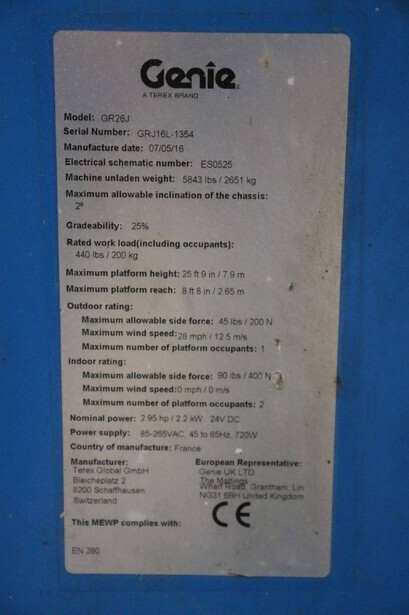 Genie
A TEREX BRAND
Model: GR26J
Serial Number: GRJ16L-1354
Manufacture date: 07/05/16
Electrical schematic number: ES0525
Machine unladen weight: 5843 lbs / 2651 kg
Maximum allowable inclination of the chassis:
2º
Gradeability: 25%
Rated work load(including occupants):
440 lbs / 200 kg
Maximum platform height: 25 ft 9 in / 7.9 m
Maximum platform reach: 8 ft 8 in / 2.65 m
Outdoor rating:
Maximum allowable side force: 45 lbs / 200 N
Maximum wind speed: 28 mph / 12.5 m/s
Maximum number of platform occupants: 1
Indoor rating:
Maximum allowable side force: 90 lbs / 400 N
Maximum wind speed:0 mph / 0 m/s
Maximum number of platform occupants: 2
Nominal power: 2.95 hp / 2.2 kW 24V DC
Power supply: 85-265VAC, 45 to 65Hz, 720W
Country of manufacture: France
Manufacturer: European Representative:
Terex Global GmbH Genie UK LTD
Bleicheplatz 2 The Maltings
8200 Schaffhausen Wharf Road, Grantham, Lin
Switzerland NG31 6BH United Kingdom
This MEWP complies with: CE
EN 280